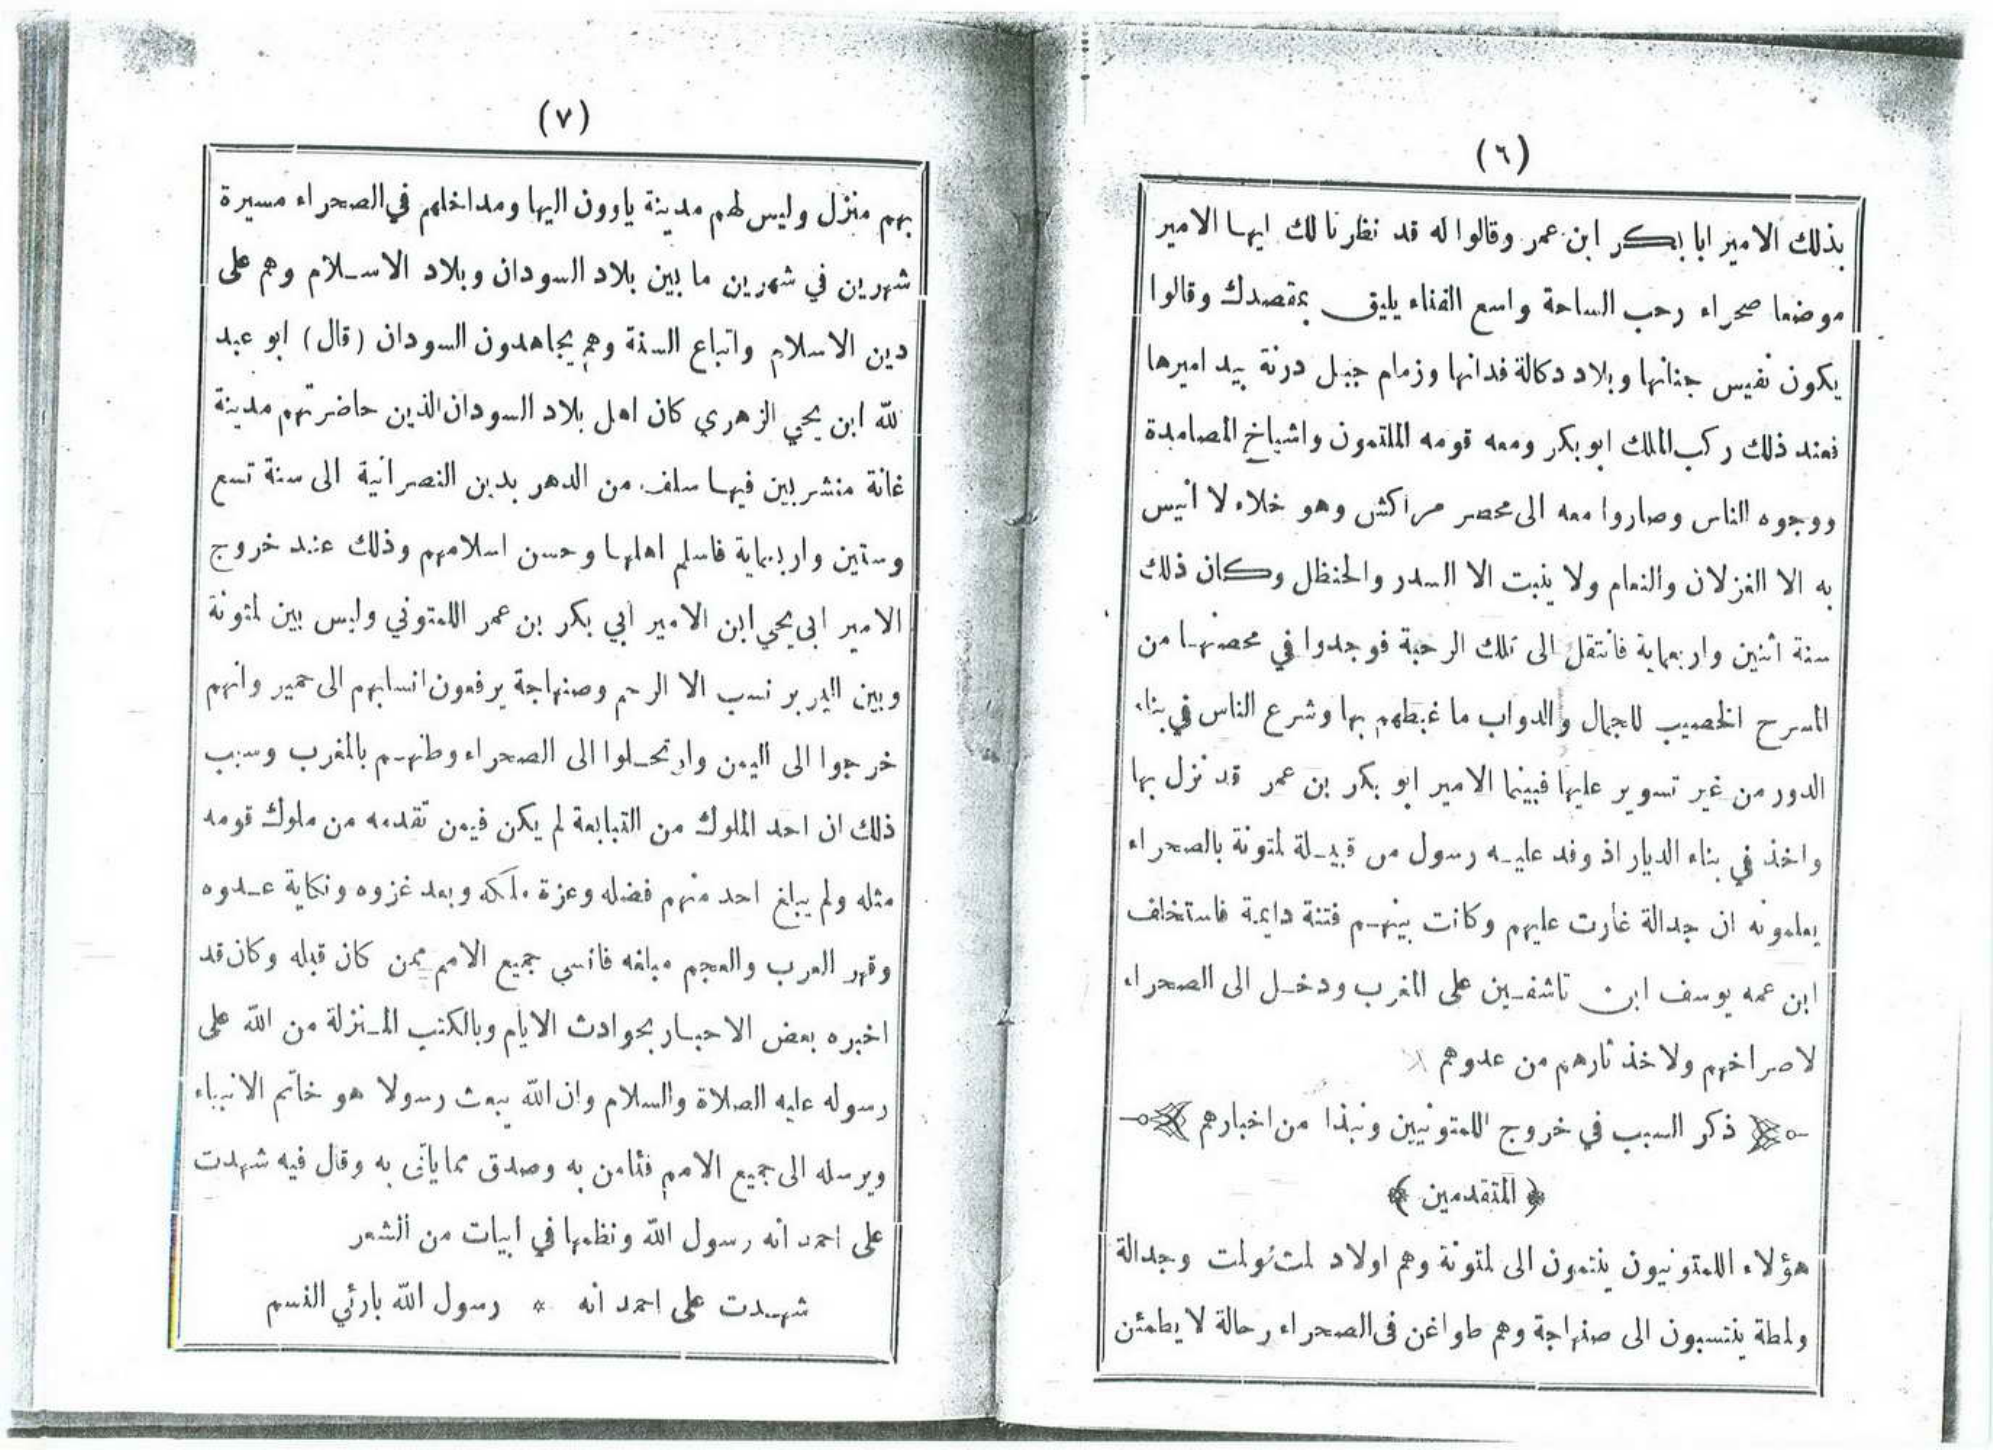 (٦)
بذلك الامير ابا بكر ابن عمر وقالوا له قد نظرنا لك ايها الامير
موضعا صحراء رحب الساحة واسع الفناء يليق بمقصدك وقالوا
يكون نفيس جنانها وبلاد دكالة فدانها وزمام جبل درنة بيد اميرها
فعند ذلك ركب الملك ابو بكر ومعه قومه الملثمون واشياخ المصامدة
ووجوه الناس وصاروا معه الى محصر مراكش وهو خلاء لا انيس
به الا الغزلان والنعام ولا ينبت الا السدر والحنظل وكان ذلك
سنة اثنين واربعماية فانتقل الى تلك الرحبة فوجدوا في محصنها من
المسرح الخصيب للجمال والدواب ما غبطهم بها وشرع الناس في بناء
الدور من غير تسوير عليها فبينما الامير ابو بكر بن عمر قد نزل بها
واخذ في بناء الديار اذ وفد عليه رسول من قبيلة لمتونة بالصحراء
يعلمونه ان جدالة غارت عليهم وكانت بينهم فتنة دايمة فاستخلف
ابن عمه يوسف ابن تاشفين على المغرب ودخل الى الصحراء
لاصراخهم ولاخذ ثارهم من عدوهم
ذكر السبب في خروج اللمتونيين ونبذا من اخبارهم
﴿ المتقدمين ﴾
هؤلاء اللمتونيون ينتمون الى لمتونة وهم اولاد لمت ولمت وجدالة
ولمطة ينتسبون الى صنهاجة وهم طواغن في الصحراء رحالة لا يطمئن
(٧)
بهم منزل وليس لهم مدينة ياوون اليها ومداخلهم في الصحراء مسيرة
شهرين في شهرين ما بين بلاد السودان وبلاد الاسلام وهم على
دين الاسلام واتباع السنة وهم يجاهدون السودان (قال) ابو عبد
لله ابن يحي الزهري كان اهل بلاد السودان الذين حاضرتهم مدينة
غانة منشربين فيها سلف من الدهر بدين النصرانية الى سنة تسع
وستين واربعماية فاسلم اهلها وحسن اسلامهم وذلك عند خروج
الامير ابي يحي ابن الامير ابي بكر بن عمر اللمتوني وليس بين لمتونة
وبين البربر نسب الا الرحم وصنهاجة يرفعون انسابهم الى حمير وانهم
خرجوا الى اليمن وارتحلوا الى الصحراء وطنهم بالمغرب وسبب
ذلك ان احد الملوك من التبابعة لم يكن فيمن تقدمه من ملوك قومه
مثله ولم يبلغ احد منهم فضله وعزة ملكه وبعد غزوه ونكاية عدوه
وقهر العرب والعجم مبلغه فانسى جميع الامم ممن كان قبله وكان قد
اخبره بعض الاحبار بحوادث الايام وبالكتب المنزلة من الله على
رسوله عليه الصلاة والسلام وان الله يبعث رسولا هو خاتم الانبياء
ويرسله الى جميع الامم فئامن به وصدق مما ياتى به وقال فيه شهدت
على احمد انه رسول الله ونظمها في ابيات من الشعر
شهدت على احمد انه * رسول الله بارئي النسم